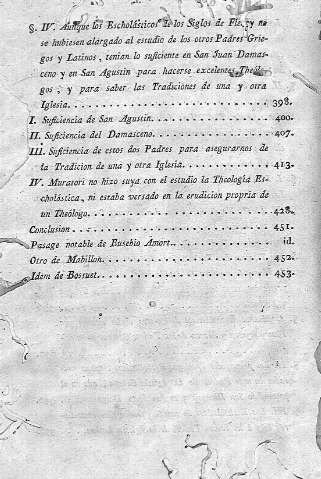 §. IV. Aunque los Escholásticos de los Siglos de Fle, y no
se hubiesen alargado al estudio de los otros Padres Grie-
gos y Latinos, tenian lo suficiente en San Juan Damas-
ceno y en San Agustin para hacerse excelentes Theólo-
gos, y para saber las Tradiciones de una y otra
Iglesia. 398.
I. Suficiencia de San Agustin. 400.
II. Suficiencia del Damasceno. 407.
III. Suficiencia de estos dos Padres para asegurarnos de
la Tradicion de una y otra Iglesia. 413.
IV. Muratori no hizo suya con el estudio la Theologia Es-
cholástica, ni estaba versado en la erudicion propria de
un Theólogo. 428.
Conclusion. 451.
Pasage notable de Eusebio Amort. id.
Otro de Mabillon. 452.
Idem de Bossuet. 453.